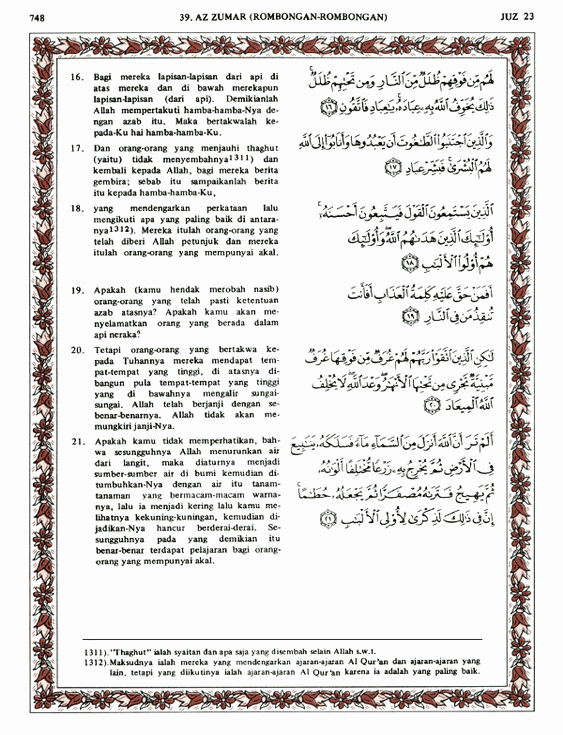 748
39. AZ ZUMAR (ROMBONGAN-ROMBONGAN)
JUZ 23
16. Bagi mereka lapisan-lapisan dari api di
atas mereka dan di bawah merekapun
lapisan-lapisan (dari api). Demikianlah
Allah mempertakuti hamba-hamba-Nya de-
ngan azab itu. Maka bertakwalah ke-
pada-Ku hai hamba-hamba-Ku.
لَهُم مِّن فَوْقِهِمْ ظُلَلٌ مِّنَ ٱلنَّارِ وَمِن تَحْتِهِمْ ظُلَلٌ ۚ
ذَٰلِكَ يُخَوِّفُ ٱللَّهُ بِهِۦ عِبَادَهُۥ ۚ يَٰعِبَادِ فَٱتَّقُونِ ﴿١٦﴾
17. Dan orang-orang yang menjauhi thaghut
(yaitu) tidak menyembahnya1311) dan
kembali kepada Allah, bagi mereka berita
gembira; sebab itu sampaikanlah berita
itu kepada hamba-hamba-Ku,
وَٱلَّذِينَ ٱجْتَنَبُوا۟ ٱلطَّٰغُوتَ أَن يَعْبُدُوهَا وَأَنَابُوٓا۟ إِلَى ٱللَّهِ
لَهُمُ ٱلْبُشْرَىٰ ۚ فَبَشِّرْ عِبَادِ ﴿١٧﴾
18. yang mendengarkan perkataan lalu
mengikuti apa yang paling baik di antara-
nya1312). Mereka itulah orang-orang yang
telah diberi Allah petunjuk dan mereka
itulah orang-orang yang mempunyai akal.
ٱلَّذِينَ يَسْتَمِعُونَ ٱلْقَوْلَ فَيَتَّبِعُونَ أَحْسَنَهُۥٓ ۚ
أُو۟لَٰٓئِكَ ٱلَّذِينَ هَدَىٰهُمُ ٱللَّهُ ۖ وَأُو۟لَٰٓئِكَ
هُمْ أُو۟لُوا۟ ٱلْأَلْبَٰبِ ﴿١٨﴾
19. Apakah (kamu hendak merobah nasib)
orang-orang yang telah pasti ketentuan
azab atasnya? Apakah kamu akan me-
nyelamatkan orang yang berada dalam
api neraka?
أَفَمَنْ حَقَّ عَلَيْهِ كَلِمَةُ ٱلْعَذَابِ أَفَأَنتَ
تُنقِذُ مَن فِى ٱلنَّارِ ﴿١٩﴾
20. Tetapi orang-orang yang bertakwa ke-
pada Tuhannya mereka mendapat tem-
pat-tempat yang tinggi, di atasnya di-
bangun pula tempat-tempat yang tinggi
yang di bawahnya mengalir sungai-
sungai. Allah telah berjanji dengan se-
benar-benarnya. Allah tidak akan me-
mungkiri janji-Nya.
لَٰكِنِ ٱلَّذِينَ ٱتَّقَوْا۟ رَبَّهُمْ لَهُمْ غُرَفٌ مِّن فَوْقِهَا غُرَفٌ
مَّبْنِيَّةٌ تَجْرِى مِن تَحْتِهَا ٱلْأَنْهَٰرُ ۖ وَعْدَ ٱللَّهِ ۖ لَا يُخْلِفُ
ٱللَّهُ ٱلْمِيعَادَ ﴿٢٠﴾
21. Apakah kamu tidak memperhatikan, bah-
wa sesungguhnya Allah menurunkan air
dari langit, maka diaturnya menjadi
sumber-sumber air di bumi kemudian di-
tumbuhkan-Nya dengan air itu tanam-
tanaman yang bermacam-macam warna-
nya, lalu ia menjadi kering lalu kamu me-
lihatnya kekuning-kuningan, kemudian di-
jadikan-Nya hancur berderai-derai. Se-
sungguhnya pada yang demikian itu
benar-benar terdapat pelajaran bagi orang-
orang yang mempunyai akal.
أَلَمْ تَرَ أَنَّ ٱللَّهَ أَنزَلَ مِنَ ٱلسَّمَآءِ مَآءً فَسَلَكَهُۥ يَنَٰبِيعَ
فِى ٱلْأَرْضِ ثُمَّ يُخْرِجُ بِهِۦ زَرْعًا مُّخْتَلِفًا أَلْوَٰنُهُۥ
ثُمَّ يَهِيجُ فَتَرَىٰهُ مُصْفَرًّا ثُمَّ يَجْعَلُهُۥ حُطَٰمًا ۚ
إِنَّ فِى ذَٰلِكَ لَذِكْرَىٰ لِأُو۟لِى ٱلْأَلْبَٰبِ ﴿٢١﴾
1311). "Thaghut" ialah syaitan dan apa saja yang disembah selain Allah s.w.t.
1312). Maksudnya ialah mereka yang mendengarkan ajaran-ajaran Al Qur'an dan ajaran-ajaran yang
lain, tetapi yang diikutinya ialah ajaran-ajaran Al Qur'an karena ia adalah yang paling baik.